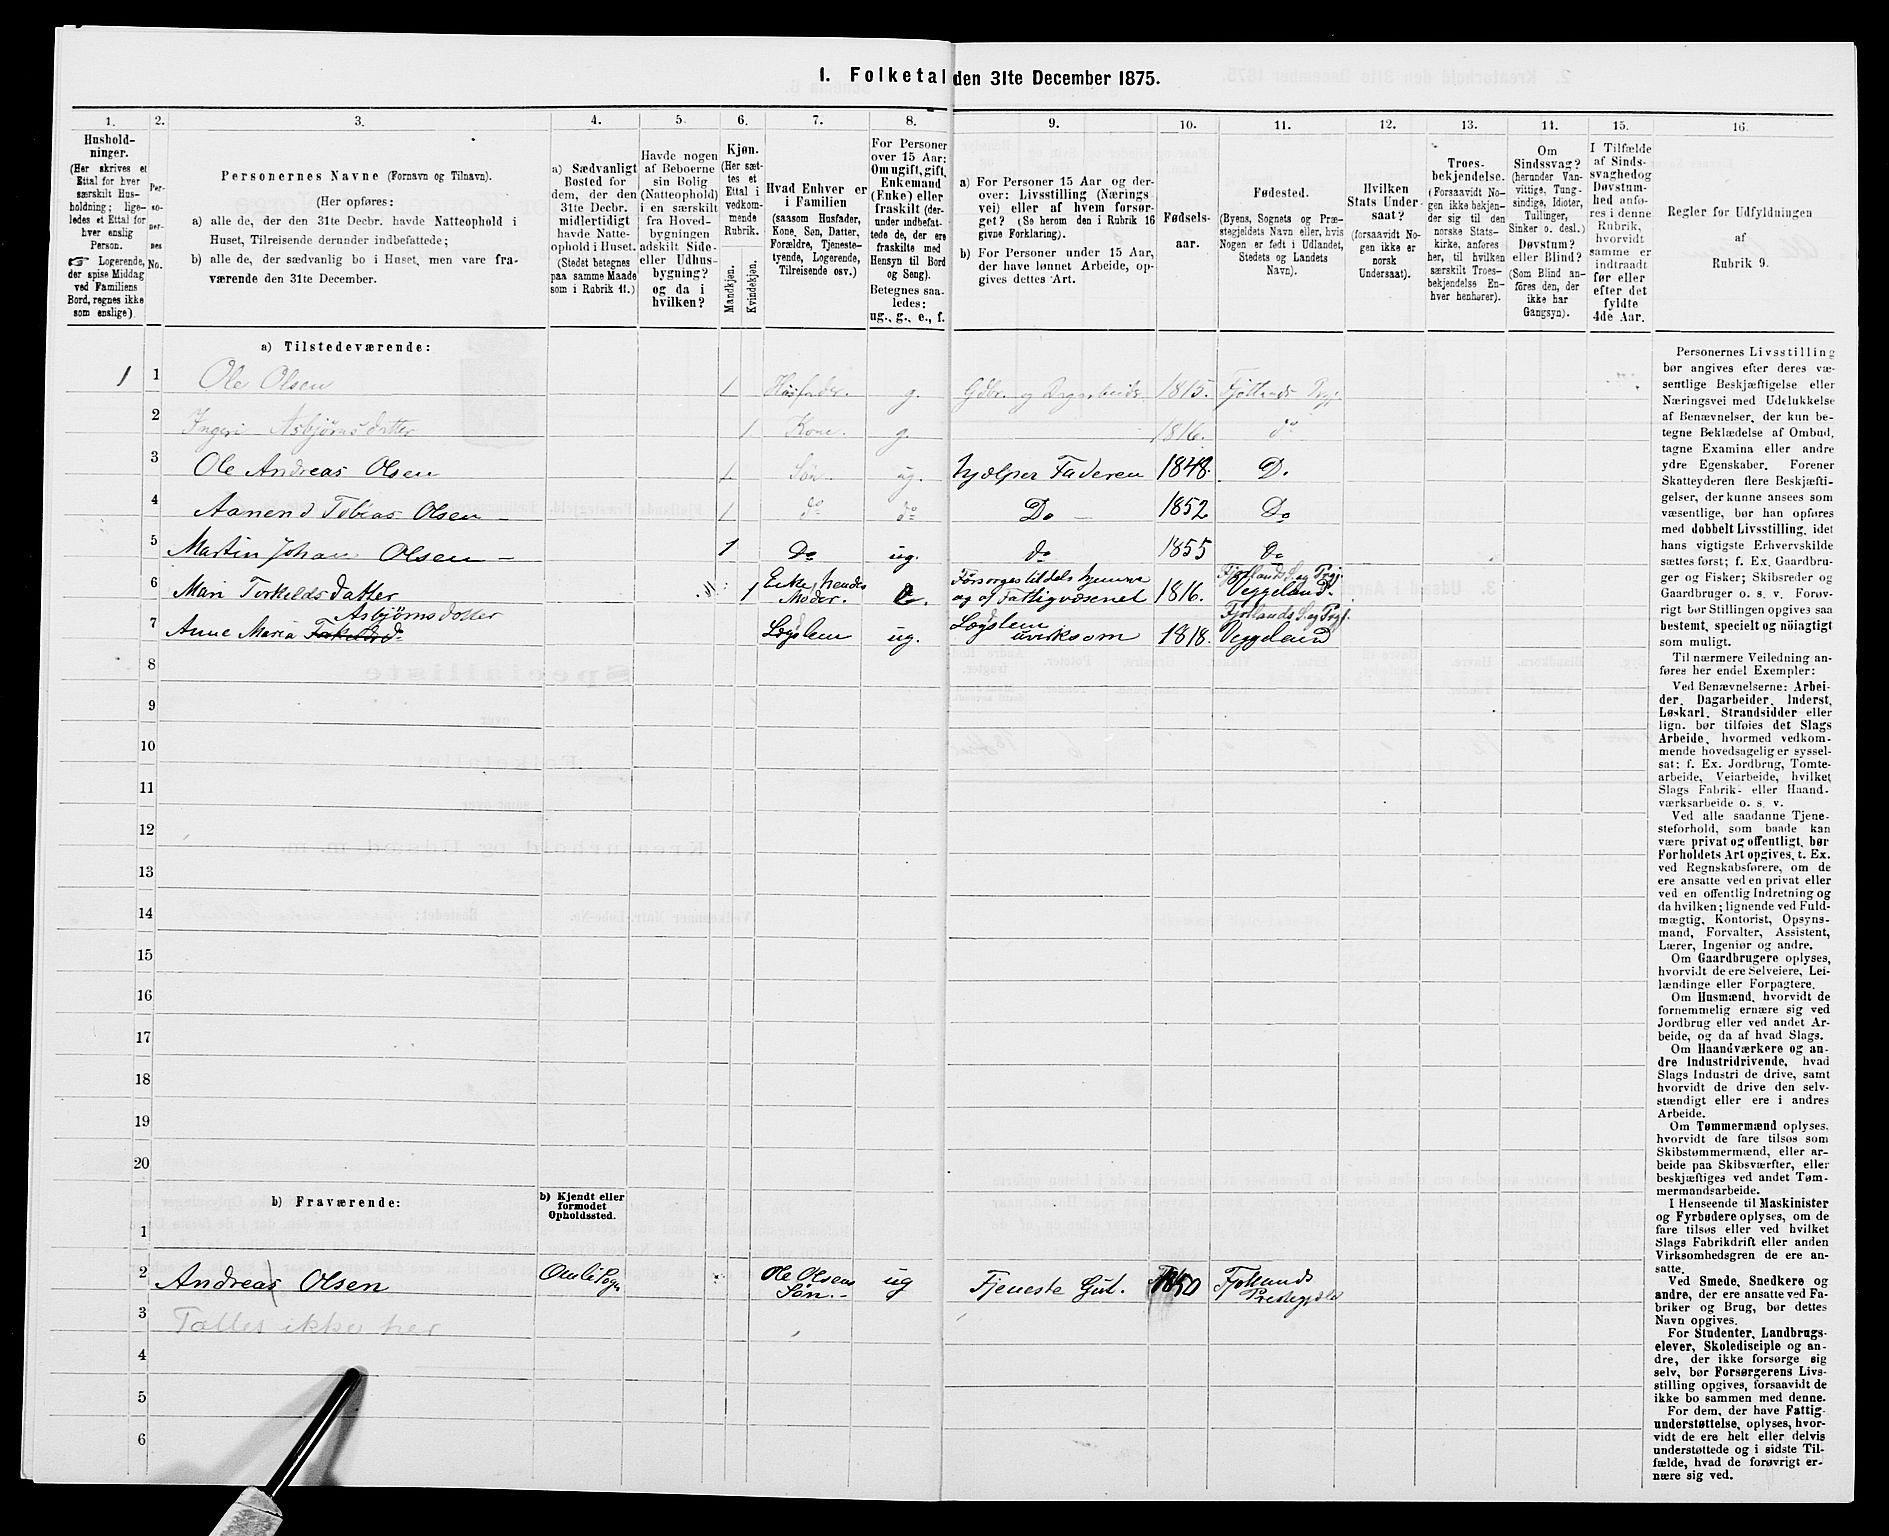 1. Folketal den 31te December 1875.
1. 2. 3. 4. 5. 6. 7. 8. 9. 10. 11. 12. 13. 14. 15. 16.
Hushold-
ninger.
(Her skrives et
Ettal for hver
særskilt Hus-
holdning; lige-
ledes et Ettal for
hver enslig
Person.
☞ Logerende,
der spise Middag
ved Familiens
Bord, regnes ikke
som enslige).
Per-
so-
ner-
nes
No.
Personernes Navne (Fornavn og Tilnavn).
(Her opføres:
a) alle de, der den 31te Decbr. havde Natteophold i
Huset, Tilreisende derunder indbefattede;
b) alle de, der sædvanlig bo i Huset, men vare fra-
værende den 31te December.
a) Sædvanligt
Bosted for
dem, der den
31te Decbr.
midlertidigt
havde Natte-
ophold i Huset.
(Stedet betegnes
paa samme Maade
som i Rubrik 11.)
Havde nogen
af Beboerne
sin Bolig
(Natteophold)
i en særskilt
fra Hoved-
bygningen
adskilt Side-
eller Udhus-
bygning?
og da i
hvilken?
Kjøn.
(Her sæt-
tes et
Ettal i
vedkom-
mende
Rubrik.
Mandkjøn.
Kvindekjøn.
Hvad Enhver er
i Familien
(saasom Husfader,
Kone, Søn, Datter,
Forældre, Tjeneste-
tyende, Logerende,
Tilreisende osv.)
For Personer
over 15 Aar:
Om ugift, gift,
Enkemand
(Enke) eller
fraskilt (der-
under indbefat-
tede de, der ere
fraskilte med
Hensyn til Bord
og Seng).
Betegnes saa-
ledes:
ug., g., e., f.
a) For Personer 15 Aar og der-
over: Livsstilling (Nærings-
vei) eller af hvem forsør-
get? (Se herom den i Rubrik 16
givne Forklaring).
b) For Personer under 15 Aar,
der have lønnet Arbeide, op-
gives dettes Art.
Fødsels-
aar.
Fødested.
(Byens, Sognets og Præ-
stegjeldets Navn eller, hvis
Nogen er født i Udlandet,
Stedets og Landets
Navn).
Hvilken
Stats Under-
saat?
(forsaavidt No-
gen ikke er
norsk
Undersaat).
Troes-
bekjendelse.
(Forsaavidt No-
gen ikke bekjen-
der sig til den
norske Stats-
kirke, anføres
her, til hvilken
særskilt Troes-
bekjendelse En-
hver henhører).
Om
Sindssvag?
(herunder Van-
vittige, Tung-
sindige, Idioter,
Tullinger,
Sinker o. desl.)
Døvstum?
eller Blind?
(Som Blind an-
føres den, der
ikke har
Gangsyn).
I Tilfælde
af Sinds-
svaghed og
Døvstum-
hed anfø-
res i denne
Rubrik,
hvorvidt
samme er
indtraadt
før eller
efter det
fyldte
4de Aar.
Regler for Udfyldningen
af
Rubrik 9.
a) Tilstedeværende:
1 1 Ole Olsen 1 Husfader. g. Gdbr. og Dagarbeider 1815. Fjotlands Prgj
2 Ingeri Asbjørnsdatter 1 Kone. g. 1816. do
3 Ole Andreas Olsen 1 Søn ug. hjælper Faderen 1848. D.
4 Aanend Tobias Olsen 1 do do Do 1852 Do
5 Martin Johan Olsen 1 Do ug. do 1855 Do
6 Mari Torkeldsdatter 1 Enke, hendes Moder. e. Forsørges tildels hjemme og af Fattigvæsenet 1816. Fjotlands S. og Prgj. Veggeland.
7 Anne Maria Torkeldsd. Asbjørnsdatter Lægslem ug. Lægdslem uvirksom 1818. Fjotlands S. og Prgj. Veggeland
8
9
10
11
12
13
14
15
16
17
18
19
20
b) Fraværende: b) Kjendt eller
formodet
Opholdssted.
1
2 Andreas Olsen Omli Sogn Ole Olsens Søn. ug Tjeneste Gut. 1850 Fjotlands Prestegjeld
3 Tælles ikke her
4
5
6
Personernes Livsstilling
bør angives efter deres væ-
sentlige Beskjæftigelse eller
Næringsvei med Udelukkelse
af Benævnelser, der kun be-
tegne Beklædelse af Ombud,
tagne Examina eller andre
ydre Egenskaber. Forener
Skatteyderen flere Beskjæfti-
gelser, der kunne ansees som
væsentlige, bør han opføres
med dobbelt Livsstilling, idet
hans vigtigste Erhvervskilde
sættes først; f. Ex. Gaardbru-
ger og Fisker; Skibsreder og
Gaardbruger o. s. v. Forøv-
rigt bør Stillingen opgives saa
bestemt, specielt og nöiagtigt
som muligt.
Til nærmere Veiledning an-
føres her endel Exempler:
Ved Benævnelserne: Arbei-
der, Dagarbeider, Inderst,
Løskarl, Strandsidder eller
lign. bør tilføies det Slags
Arbeide, hvormed vedkom-
mende hovedsagelig er syssel-
sat; f. Ex. Jordbrug, Tomte-
arbeide, Veiarbeide, hvilket
Slags Fabrik- eller Haand-
værksarbeide o. s. v.
Ved alle saadanne Tjene-
steforhold, som baade kan
være privat og offentligt, bør
Forholdets Art opgives, t. Ex.
ved Regnskabsførere, om de
ere ansatte ved en privat eller
ved en offentlig Indretning og
da hvilken; lignende ved Fuld-
mægtig, Kontorist, Opsyns-
mand, Forvalter, Assistent,
Lærer, Ingeniør og andre.
Om Gaardbrugere oplyses,
hvorvidt de ere Selveiere, Lei-
lændinge eller Forpagtere.
Om Husmænd, hvorvidt de
fornemmelig ernære sig ved
Jordbrug eller ved andet Ar-
beide, og da af hvad Slags.
Om Haandværkere og an-
dre Industridrivende, hvad
Slags Industri de drive, samt
hvorvidt de drive den selv-
stændigt eller ere i andres
Arbeide.
Om Tømmermænd oplyses,
hvorvidt de fare tilsøs som
Skibstømmermænd, eller ar-
beide paa Skibsværfter, eller
beskjæftiges ved andet Tøm-
mermandsarbeide.
I Henseende til Maskinister
og Fyrbødere oplyses, om de
fare tilsøs eller ved hvilket
Slags Fabrikdrift eller anden
Virksomhedsgren de ere an-
satte.
Ved Smede, Snedkere og
andre, der ere ansatte ved Fa-
briker og Brug, bør dettes
Navn opgives.
For Studenter, Landbrugs-
elever, Skoledisciple og an-
dre, der ikke forsørge sig
selv, bør Forsørgerens Livs-
stilling opgives, forsaavidt de
ikke bo sammen med denne.
For dem, der have Fattig-
understøttelse, oplyses, hvor-
vidt de ere helt eller delvis
understøttede og i sidste Til-
fælde, hvad de forøvrigt er-
nære sig ved.